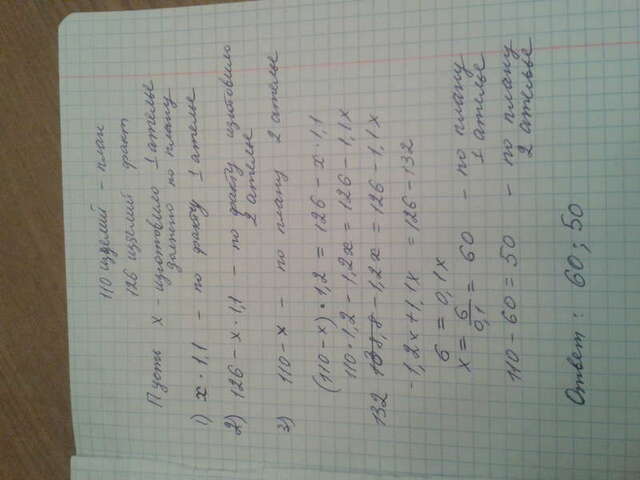 110 изделий - план
126 изделий факт
Пусть x - изготовило 1 ателье
по плану
1) x · 1,1 - по факту 1 ателье
2) 126 - x · 1,1 - по факту изготовило
2 ателье
3) 110 - x - по плану 2 ателье
(110 - x) · 1,2 = 126 - x · 1,1
110 · 1,2 - 1,2x = 126 - 1,1x
132 - 1,2x = 126 - 1,1x
-1,2x + 1,1x = 126 - 132
6 = 0,1x
x = 6/0,1 = 60 - по плану
1 ателье
110 - 60 = 50 - по плану
2 ателье
Ответ: 60; 50